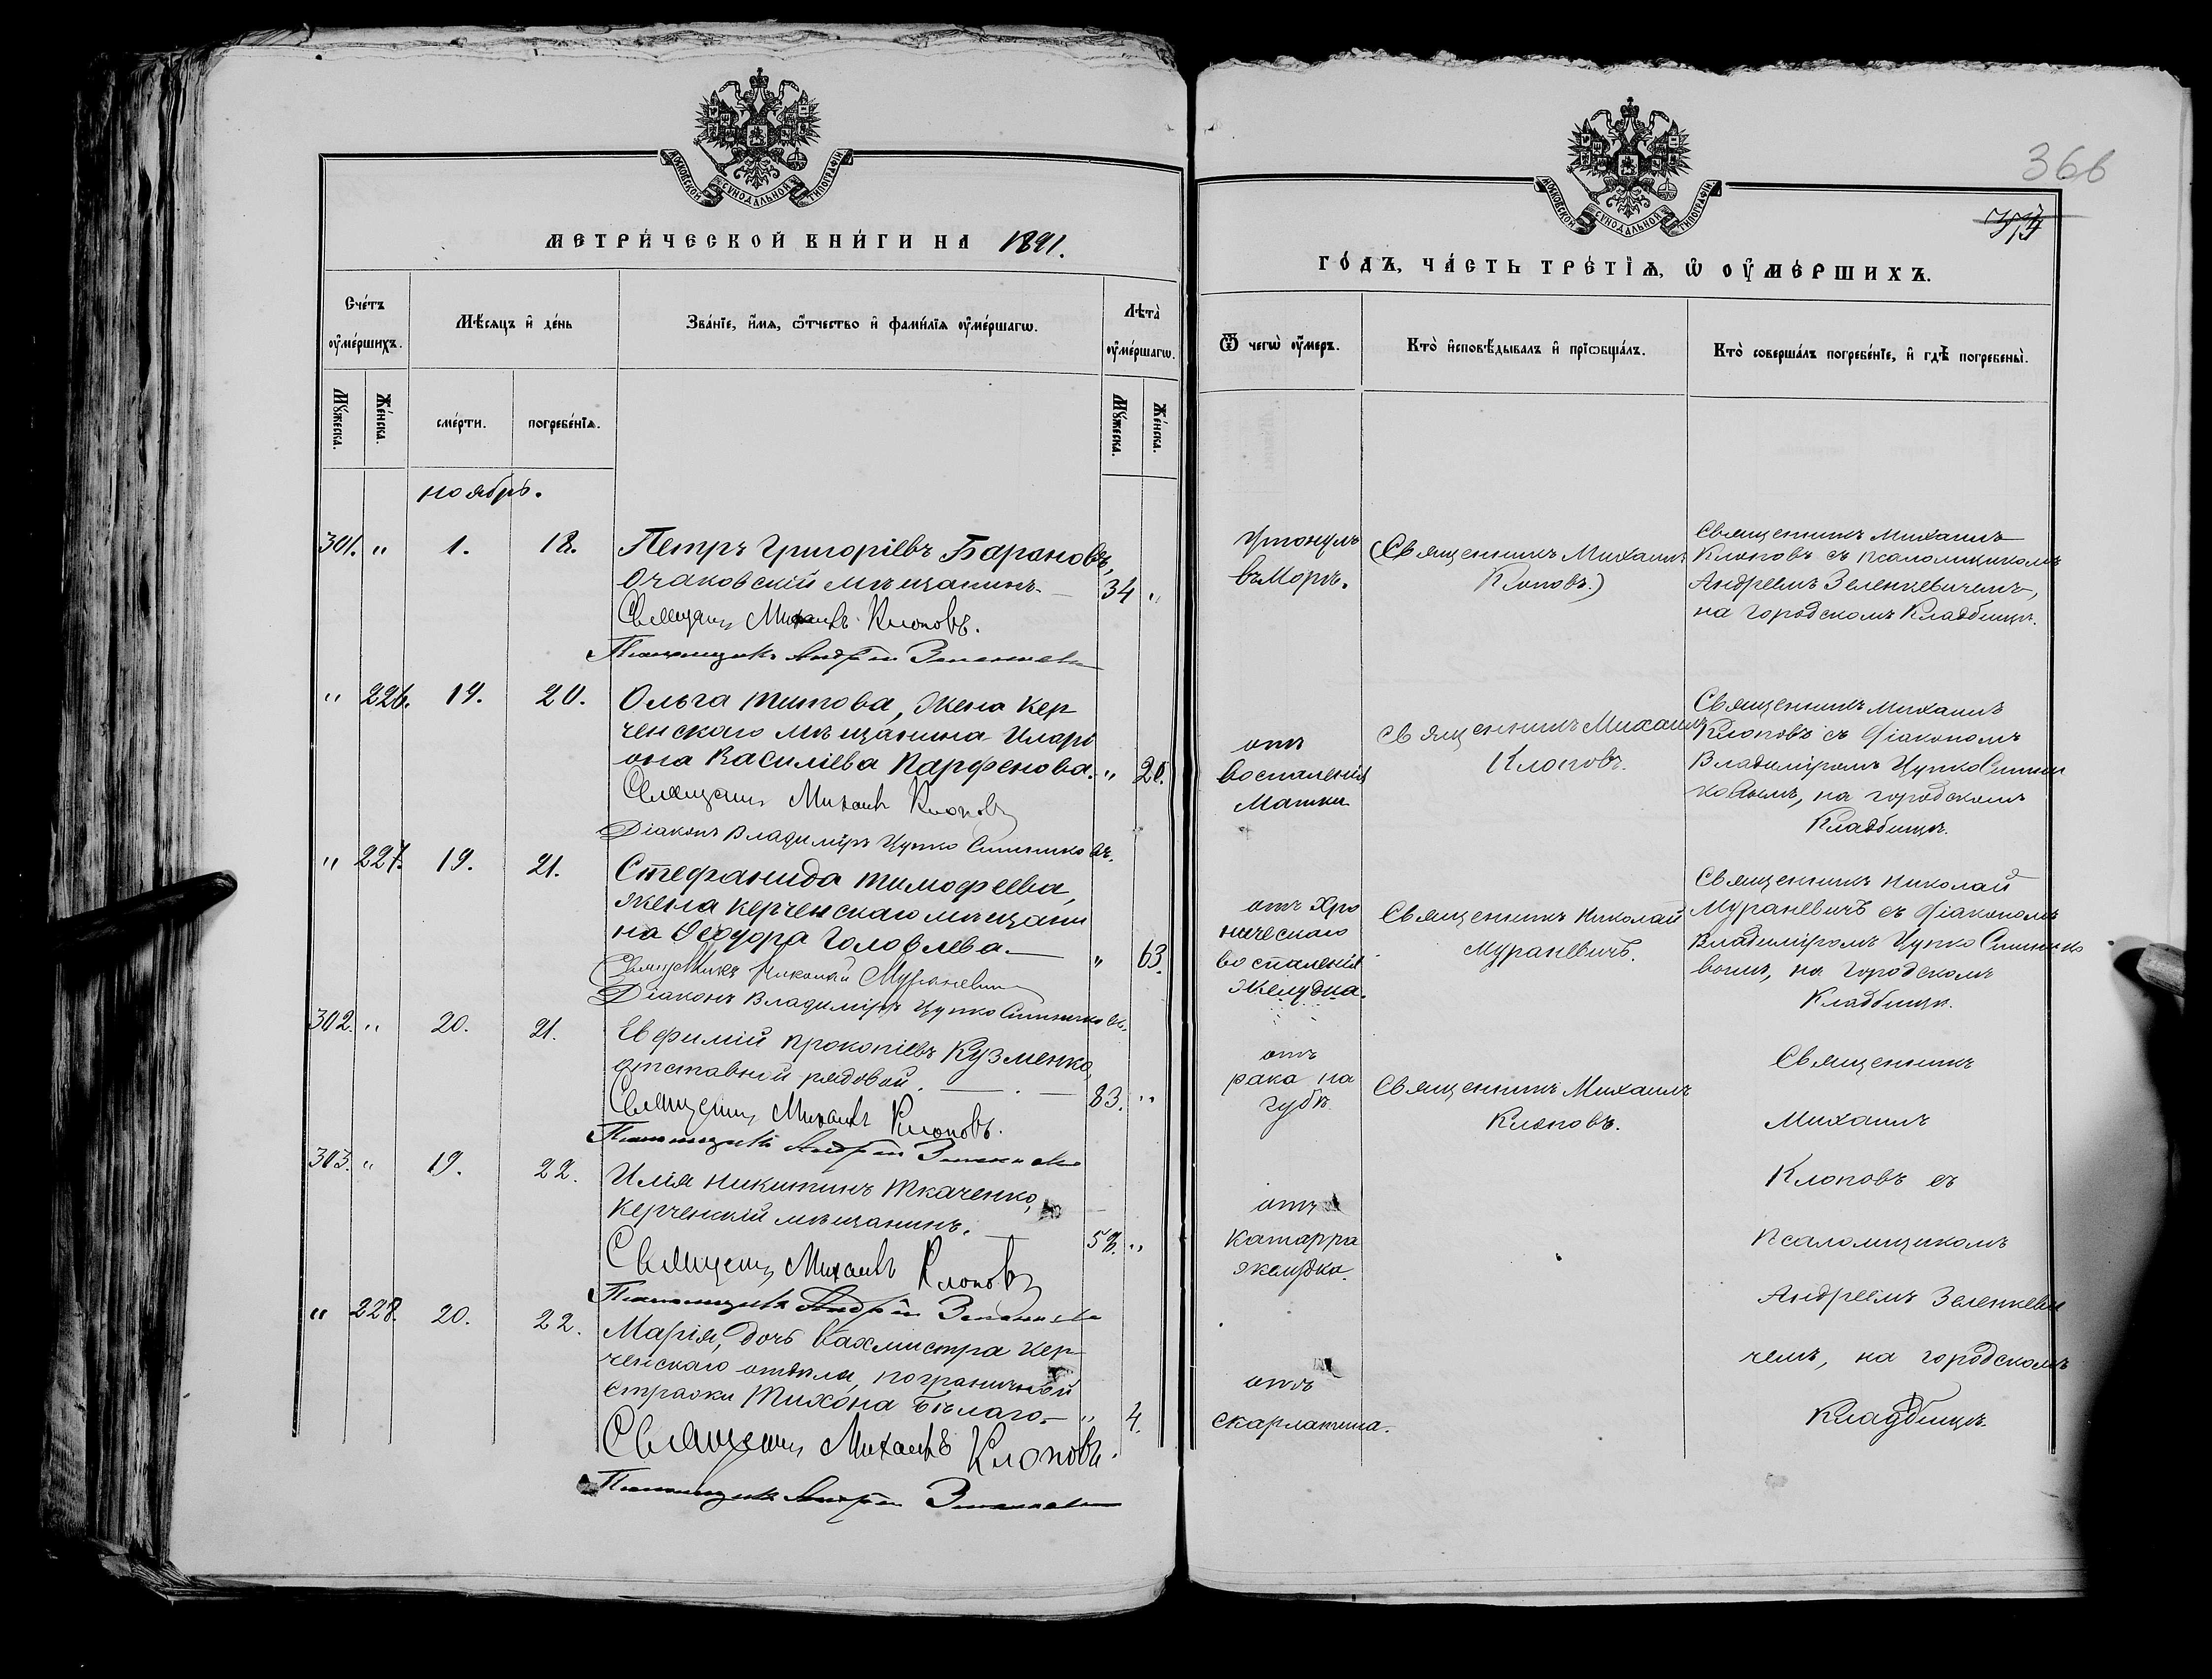 МОСКОВСКОЙ СѴНОДАЛЬНОЙ ТИПОГРАФІИ
МЕТРИ́ЧЕСКОЙ КНИ́ГИ НА 1891.
Сче́тъ ᲂу҆ме́ршихъ.
Мѣ́сяцъ и҆ де́нь
Зва́нїе, и҆́мѧ, ѻ҆́тчество и҆ фами́лїѧ ᲂу҆ме́ршагѡ.
Лѣта̀ ᲂу҆ме́ршагѡ.
Мꙋ́жеска.
Же́нска.
сме́рти.
погребе́нїѧ.
Мꙋ́жеска.
Же́нска.
ноябрь.
301. " 1. 18. Петръ Григоріевъ Барановъ,
Очаковскій мѣщанинъ. — 34 "
Священн. Михаилъ Клоповъ.
Псаломщикъ Андрей Зеленкевич
" 226. 19. 20. Ольга Титова, жена Кер
ченскаго мѣщанина Иларі
она Василіева Парфенова. " 20.
Священн. Михаилъ Клоповъ
Діаконъ Владиміръ Цупко Ситниковъ.
" 227. 19. 21. Стефанида Тимофеева,
жена керченскаго мѣщани
на Ѳеодора Головлева. — " 63.
Священникъ Николай Мураневичъ
Діаконъ Владиміръ Цупко Ситниковъ.
302. " 20. 21. Евфимій Прокопіевъ Кузменко,
отставной рядовой. — 83. "
Священн. Михаилъ Клоповъ.
Псаломщикъ Андрей Зеленкевич
303. " 19. 22. Илія Никитинъ Ткаченко,
Керченскій мѣщанинъ. — 58. "
Священн. Михаилъ Клоповъ
Псаломщикъ Андрей Зеленкевич
" 228. 20. 22. Марія, дочь вахмистра Кер
ченскаго отдѣла, пограничной
стражи Тихона Бѣлаго. — " 4.
Священн. Михаилъ Клоповъ.
Псаломщикъ Андрей Зеленкевич
366
МОСКОВСКОЙ СѴНОДАЛЬНОЙ ТИПОГРАФІИ
ГО́ДЪ, ЧА́СТЬ ТРЕ́ТЇѦ, Ѡ҆ ОУ҆МЕ́РШИХЪ.
Ѿ чегѡ̀ ᲂу҆́меръ.
Кто̀ и҆сповѣ́дывалъ и҆ прїѡбща́лъ.
Кто̀ соверша́лъ погребе́нїе, и҆ гдѣ̀ погребены̀.
Утонулъ
въ морѣ.
(Священникъ Михаилъ
Клоповъ.)
Священникъ Михаилъ
Клоповъ съ псаломщикомъ
Андреемъ Зеленкевичемъ,
на городскомъ Кладбищѣ.
отъ
воспаленія
Матки
Священникъ Михаилъ
Клоповъ.
Священникъ Михаилъ
Клоповъ съ Діакономъ
Владиміромъ Цупко Ситни
ковымъ, на городскомъ
Кладбищѣ.
отъ хро
ническаго
воспаленія
желудка.
Священникъ Николай
Мураневичъ.
Священникъ Николай
Мураневичъ съ Діакономъ
Владиміромъ Цупко Ситнико
вымъ, на городскомъ
Кладбищѣ.
отъ
рака на
губѣ.
Священникъ Михаилъ
Клоповъ.
Священникъ
Михаилъ
Клоповъ съ
Псаломщикомъ
Андреемъ Зеленкеви
чемъ, на городскомъ
Кладбищѣ.
отъ
катарра
желудка.
отъ
скарлатина.